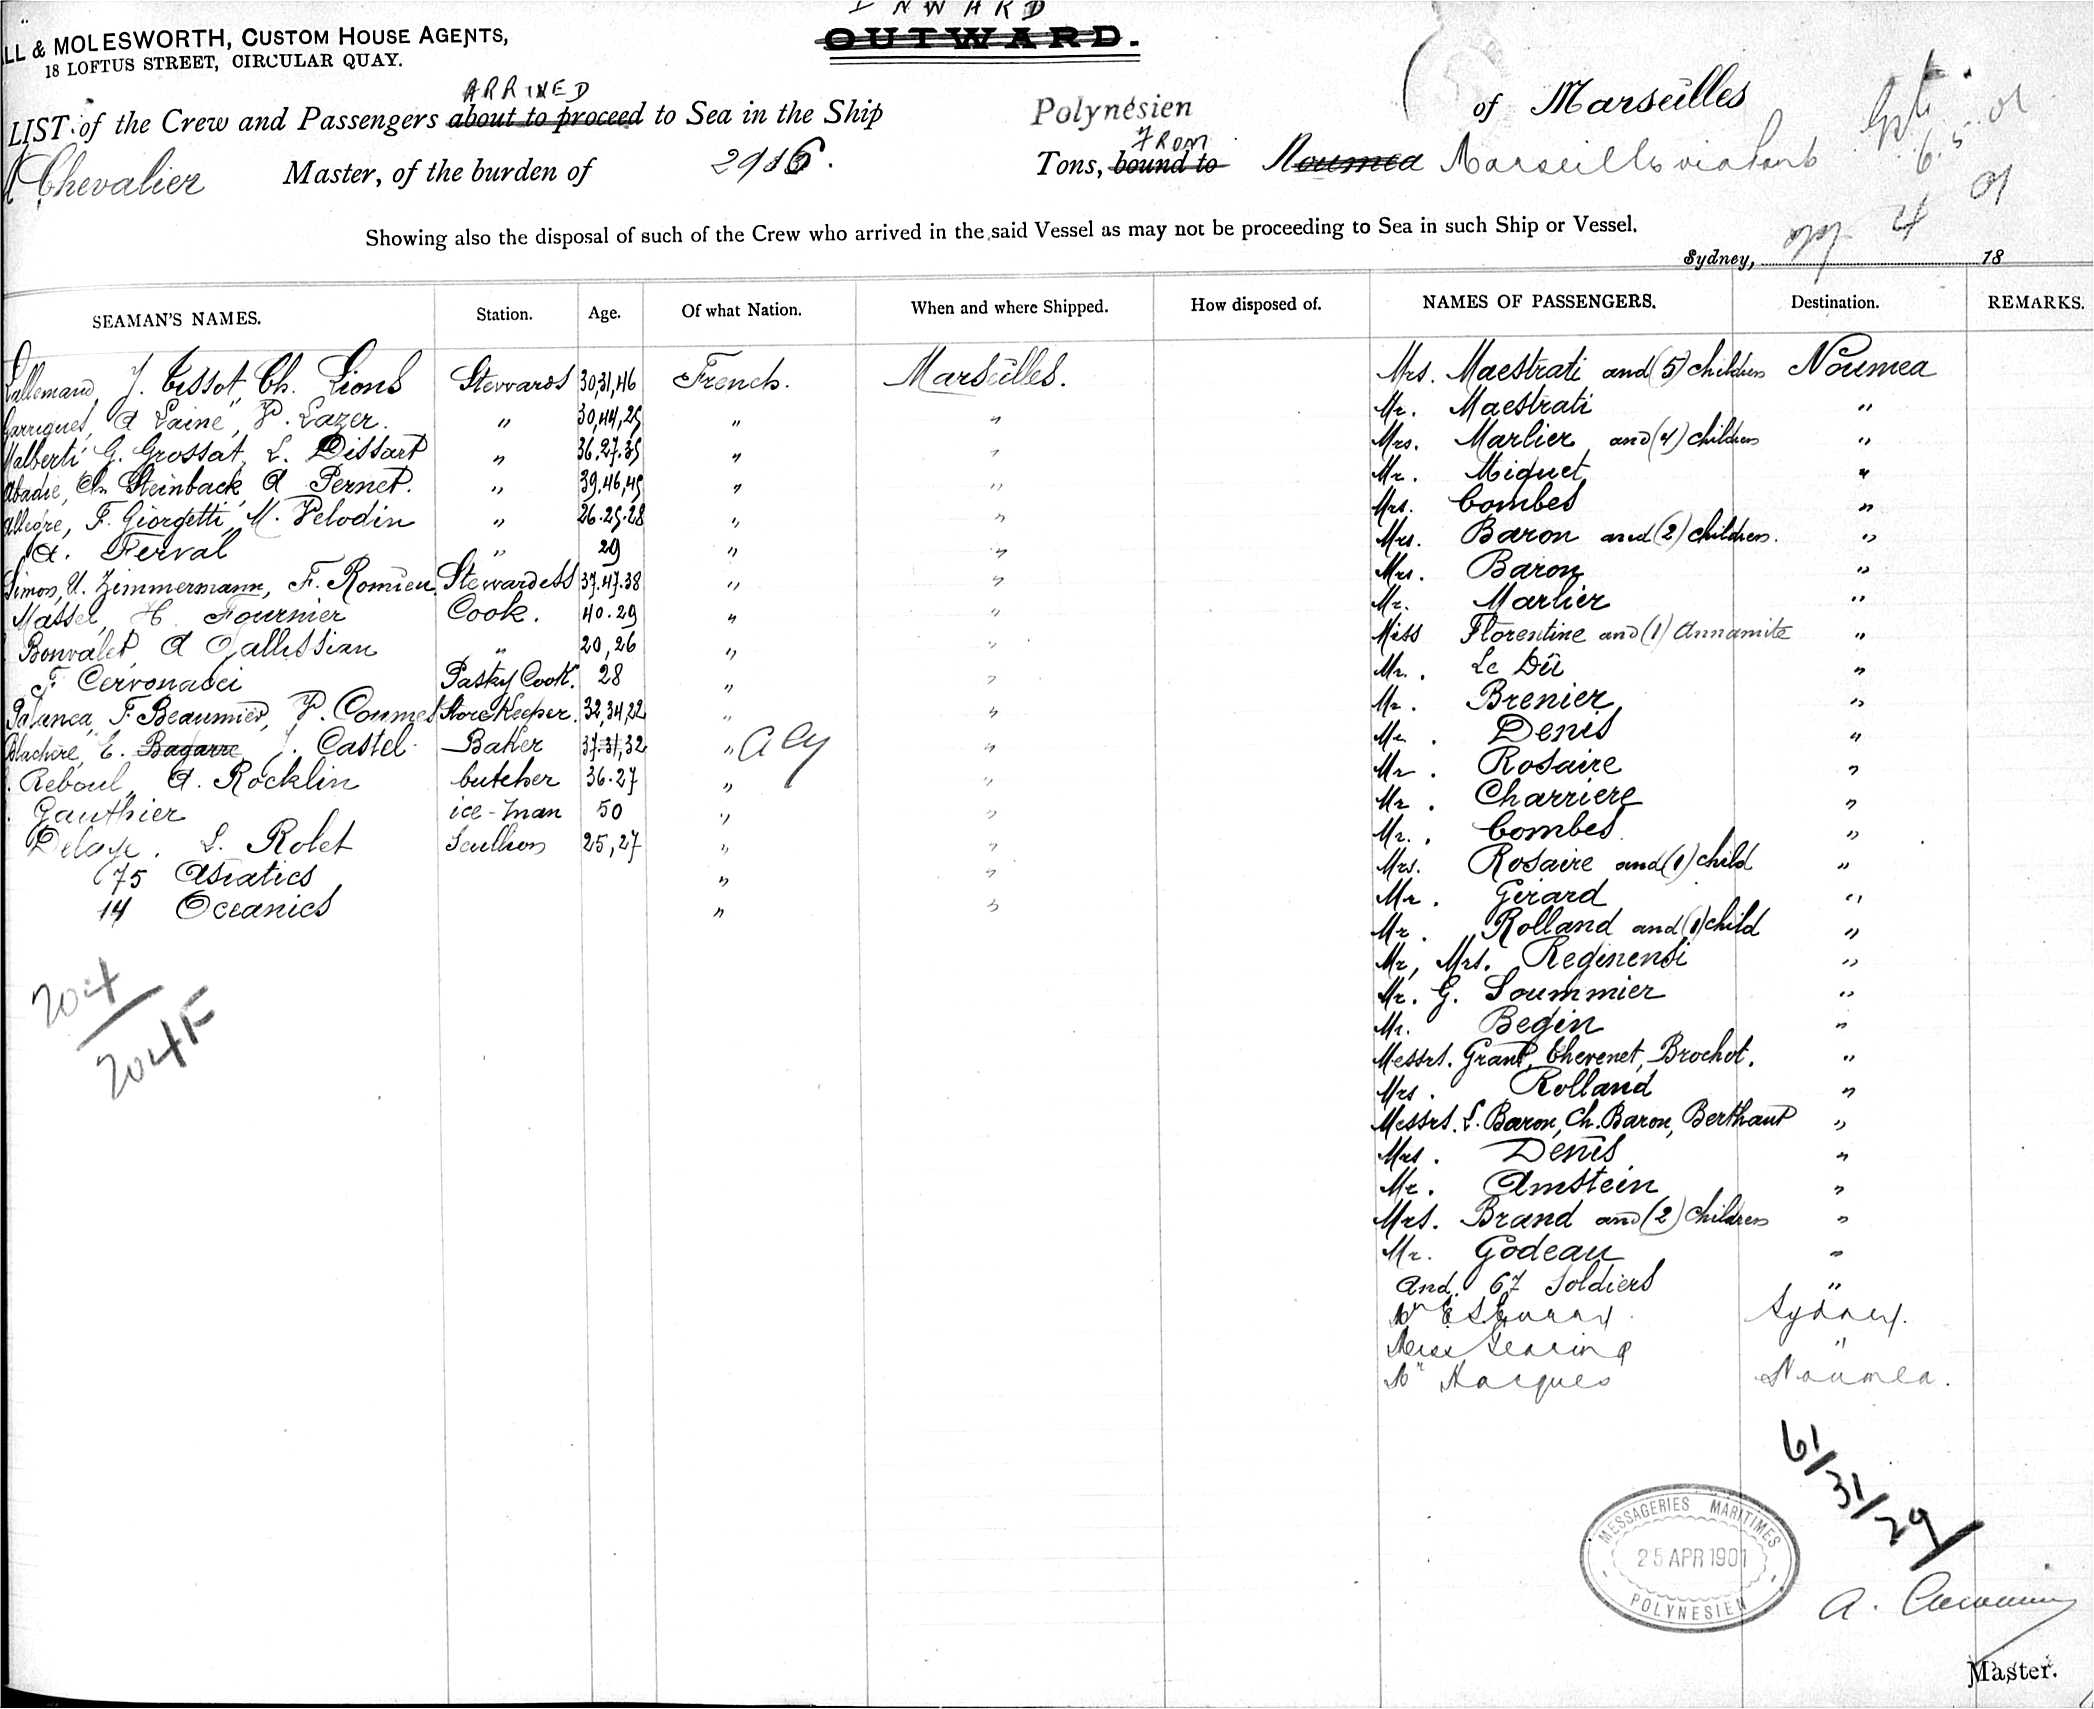 INWARD
OUTWARD.
LL & MOLESWORTH, CUSTOM HOUSE AGENTS,
18 LOFTUS STREET, CIRCULAR QUAY.
ARRIVED
LIST of the Crew and Passengers about to proceed to Sea in the Ship Polynésien of Marseilles
Chevalier Master, of the burden of Tons, bound to FROM Noumea Marseilles via Ports
Showing also the disposal of such of the Crew who arrived in the said Vessel as may not be proceeding to Sea in such Ship or Vessel.
Sydney, 4 18
SEAMAN'S NAMES. Station. Age. Of what Nation. When and where Shipped. How disposed of. NAMES OF PASSENGERS. Destination. REMARKS.
Lallemand, J. Tissot, Ch. Lions Stewards 30,31,46 French. Marseilles. Mrs. Maestrati and (5) children Noumea
Garrigues, A Lainé, P. Lazer. " 30,44,25 " " Mr. Maestrati "
Malberti G. Grossat, L. Dissart " 36.27.35 " " Mrs. Marlier and (4) children "
Abadie, Ch. Steinback, A Pernet. " 39,46,45 " " Mr. Miquet "
Allegre, F. Giorgetti, M. Pelodin " 26.25.28 " " Mrs. Combes "
A. Ferval " 29 " " Mrs. Baron and (2) children. "
Simon, U. Zimmermann, F. Romieu Stewardess 37.47.38 " " Mrs. Baron "
Massel, H. Fournier Cook. 40.29 " " Mr. Marlier "
Bonvalet, A Gallissian " 20,26 " " Miss Florentine and (1) Annamite "
F. Cervonacci Pastry Cook. 28 " " Mr. Le Dû "
Palanca, F. Beaumier, P. Coumet Storekeeper. 32,34,22 " " Mr. Brenier "
Blachere, E. Bagarre J. Castel Baker 37.31,32 " " Mr. Denis "
Reboul, A. Rocklin butcher 36.27 " " Mr. Rosaire "
Gauthier ice-man 50 " " Mr. Charriere "
Delaye. L. Rolet Scullion 25,27 " " Mr. Combes "
75 Asiatics " " Mrs. Rosaire and (1) child "
14 Oceanics " " Mr. Girard "
Mr. Rolland and (1) child "
Mr, Mrs. Reginensi "
Mr. G. Soummier "
Mr. Begin "
Messrs. Grant, Chevenet, Brochot. "
Mrs. Rolland "
Messrs. L. Baron, Ch. Baron, Berthaut "
Mrs. Denis "
Mr. Amstein "
Mrs. Brand and (2) children "
Mr. Godeau "
And 67 Soldiers "
Sydney.
Miss Gearing "
Mr Marques Noumea.
204
204F
61/31/29
MESSAGERIES MARITIMES
25 APR 1901
POLYNESIEN
Master.